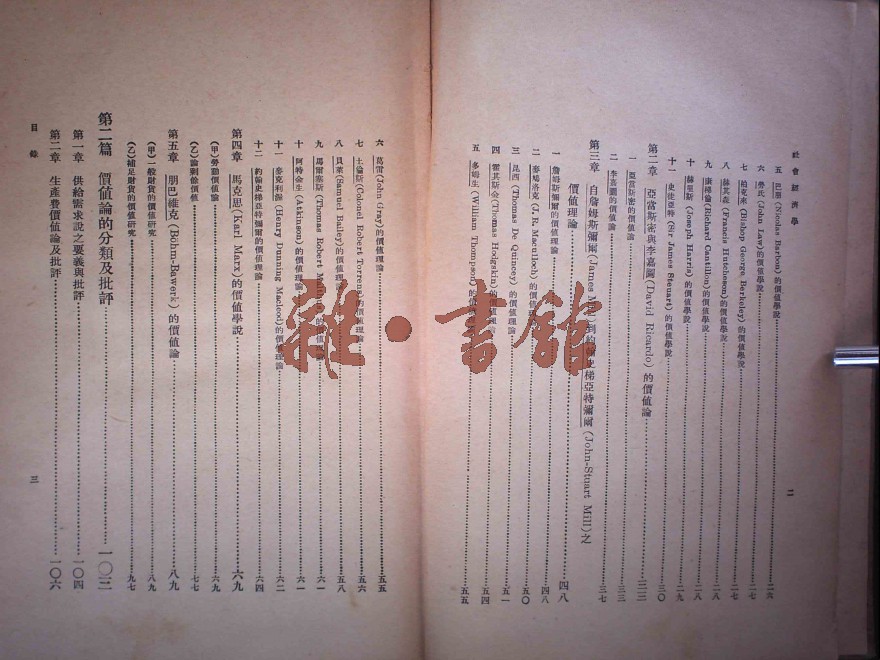 社會經濟學
五 巴賁(Nicolas Barbon)的價值學說 二六
六 勞氏(John Law)的價值學說 二七
七 柏克來(Bishop George Berkeley)的價值學說 二七
八 赫其森(Francis Hutcheson)的價值學說 二八
九 康梯倫(Richard Cantillon)的價值學說 二八
十 赫里斯(Joseph Harris)的價值學說 二九
十一 史徒亞特(Sir James Steuart)的價值學說 三〇
第二章 亞當斯密與李嘉圖(David Ricardo)的價值論 三二
一 亞當斯密的價值論
二 李嘉圖的價值論 三七
第三章 自詹姆斯彌爾(James Mill)到約翰史梯亞特彌爾(John-Stuart Mill)之
價值理論 四八
一 詹姆斯彌爾的價值理論 四八
二 麥鳩洛克(J. R. Macculloch)的價值理論 五〇
三 昆西(Thomas De Quincey)的價值理論 五一
四 霍其斯金(Thomas Hodgskin)的價值理論 五四
五 多姆生(William Thompson)的價值理論 五五
二
六 葛雷(John Gray)的價值理論 五五
七 土倫斯(Colonel Robert Torrens)的價值理論 五六
八 貝萊(Samuel Bailey)的價值理論 五八
九 馬爾塞斯(Thomas Robert Malthus)的價值理論 六一
十 阿特金生(Atkinson)的價值理論 六一
十一 麥克利得(Henry Dunning Macleod)的價值理論 六二
十二 約翰史梯亞特彌爾的價值理論 六四
第四章 馬克思(Karl Marx)的價值學說 六九
(甲)勞動價值論 六九
(乙)論剩餘價值 七七
第五章 朋巴維克(Böhm-Bawerk)的價值論 八九
(甲)一般財貨的價值研究 八九
(乙)補足財貨的價值研究 九七
第二篇 價值論的分類及批評 一〇三
第一章 供給需求說之要義與批評 一〇四
第二章 生產費價值論及批評 一〇六
目錄
三
雜·書館